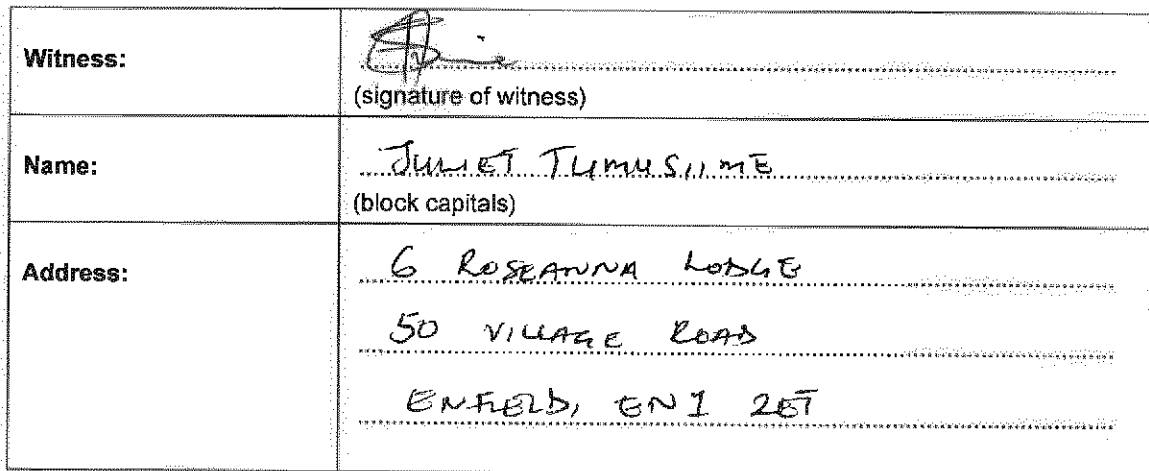 Witness:
(signature of witness)
Name:
JULIET TUMUSIIME
(block capitals)
Address:
6 ROSEANNA LODGE
50 VILLAGE ROAD
ENFIELD, EN1 2ET